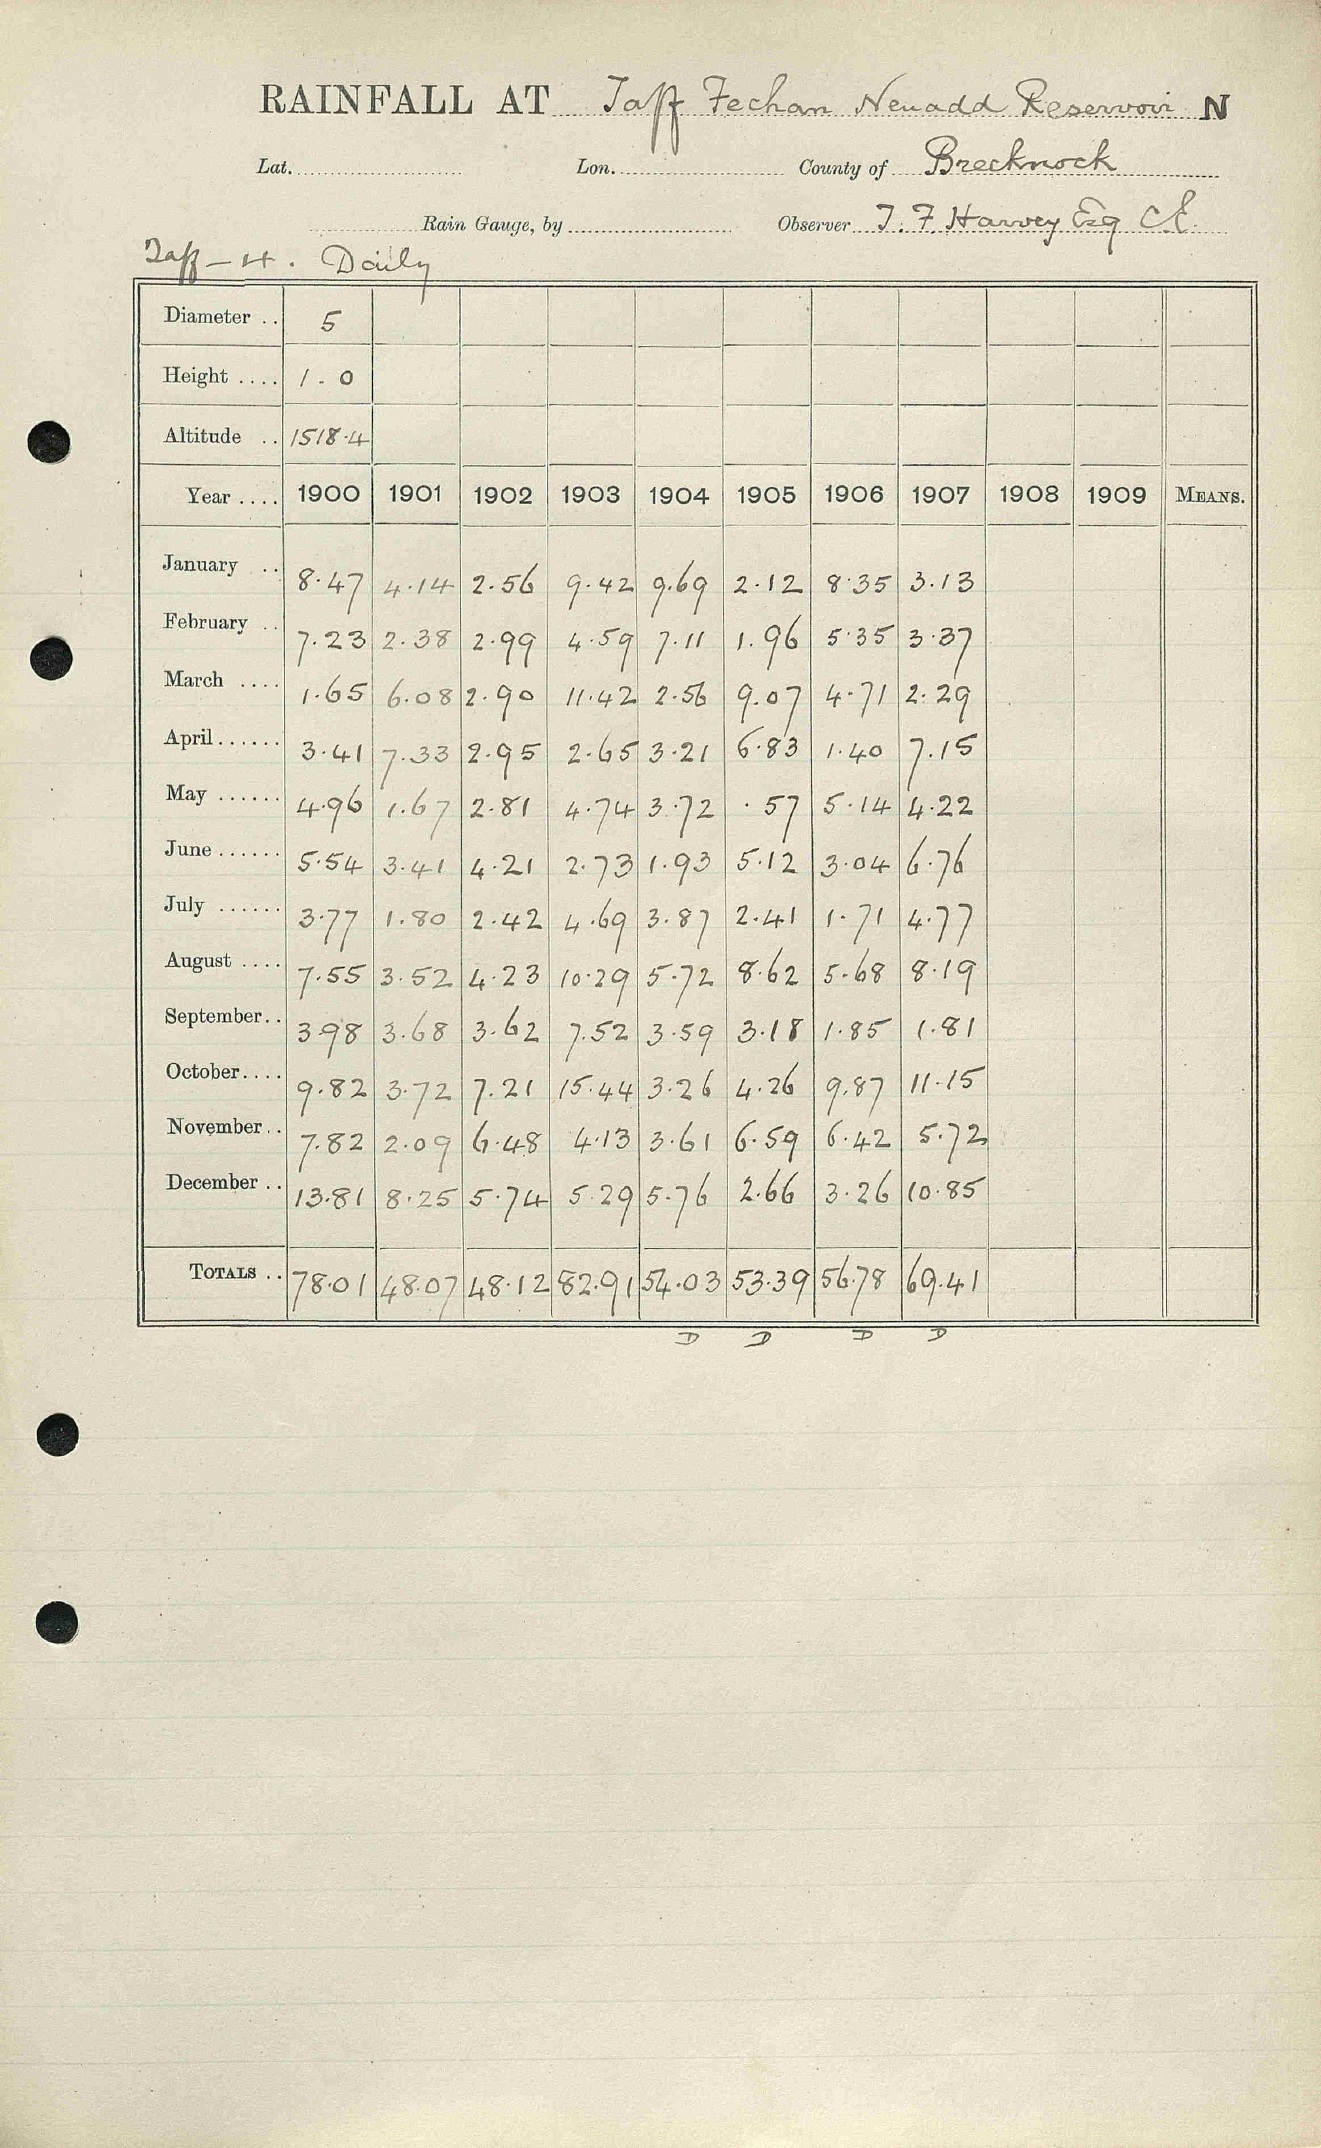 RAINFALL AT Taff Fechan Neuadd Reservoir N
Lat. Lon. County of Brecknock
Rain Gauge, by Observer T. F. Harvey Esq CE.
Taff - 4. Daily
Diameter .. 5
Height .... 1 - 0
Altitude .. 1518.4
Year .... 1900 1901 1902 1903 1904 1905 1906 1907 1908 1909 MEANS.
January .. 8.47 4.14 2.56 9.42 9.69 2.12 8.35 3.13
February .. 7.23 2.38 2.99 4.59 7.11 1.96 5.35 3.37
March .... 1.65 6.08 2.90 11.42 2.56 9.07 4.71 2.29
April...... 3.41 7.33 2.95 2.65 3.21 6.83 1.40 7.15
May ...... 4.96 1.67 2.81 4.74 3.72 .57 5.14 4.22
June...... 5.54 3.41 4.21 2.73 1.93 5.12 3.04 6.76
July ...... 3.77 1.80 2.42 4.69 3.87 2.41 1.71 4.77
August .... 7.55 3.52 4.23 10.29 5.72 8.62 5.68 8.19
September.. 3.98 3.68 3.62 7.52 3.59 3.18 1.85 1.81
October.... 9.82 3.72 7.21 15.44 3.26 4.26 9.87 11.15
November.. 7.82 2.09 6.48 4.13 3.61 6.59 6.42 5.72
December .. 13.81 8.25 5.74 5.29 5.76 2.66 3.26 10.85
TOTALS .. 78.01 48.07 48.12 82.91 54.03 53.39 56.78 69.41
D D D D